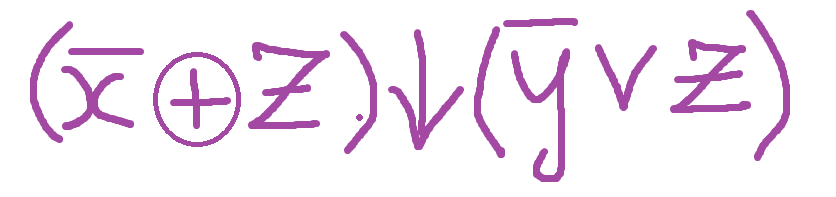 (x̅ ⊕ z)↓(y̅ ∨ z)